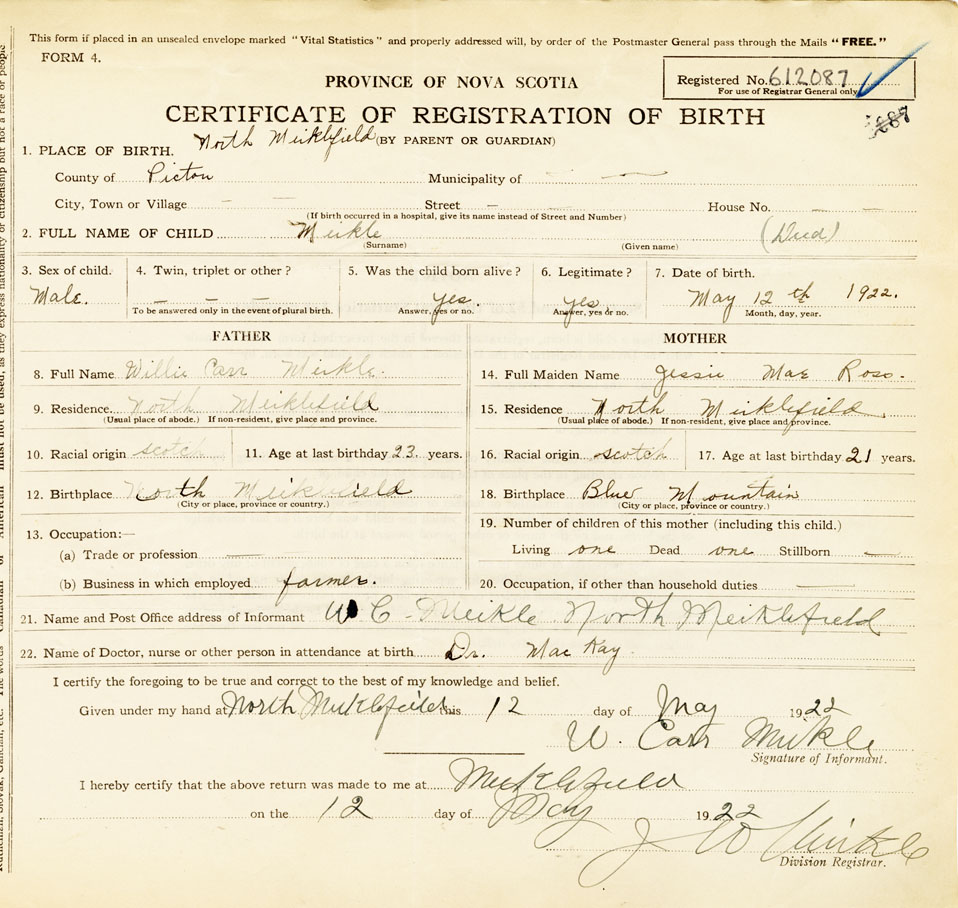 This form if placed in an unsealed envelope marked "Vital Statistics" and properly addressed will, by order of the Postmaster General pass through the Mails "FREE."
FORM 4.
Registered No. 612087
For use of Registrar General only
PROVINCE OF NOVA SCOTIA
CERTIFICATE OF REGISTRATION OF BIRTH
(BY PARENT OR GUARDIAN)
1. PLACE OF BIRTH. North Meiklefield
County of Pictou Municipality of —
City, Town or Village — — Street — House No. — —
(If birth occurred in a hospital, give its name instead of Street and Number)
2. FULL NAME OF CHILD Meikle (Died)
(Surname) (Given name)
3. Sex of child. 4. Twin, triplet or other? 5. Was the child born alive? 6. Legitimate? 7. Date of birth.
Male. — — — yes. yes May 12th 1922.
To be answered only in the event of plural birth. Answer, yes or no. Answer, yes or no. Month, day, year.
FATHER
8. Full Name Willie Carr Meikle.
9. Residence North Meiklefield
(Usual place of abode.) If non-resident, give place and province.
10. Racial origin scotch 11. Age at last birthday 23 years.
12. Birthplace North Meiklefield
(City or place, province or country.)
13. Occupation:—
(a) Trade or profession —
(b) Business in which employed farmer.
MOTHER
14. Full Maiden Name Jessie Mae Ross.
15. Residence North Meiklefield
(Usual place of abode.) If non-resident, give place and province.
16. Racial origin scotch 17. Age at last birthday 21 years.
18. Birthplace Blue Mountain
(City or place, province or country.)
19. Number of children of this mother (including this child.)
Living one Dead one Stillborn —
20. Occupation, if other than household duties —
21. Name and Post Office address of Informant W C Meikle North Meiklefield
22. Name of Doctor, nurse or other person in attendance at birth Dr. MacKay
I certify the foregoing to be true and correct to the best of my knowledge and belief.
Given under my hand at North Meiklefield this 12 day of May 1922
W. Carr Meikle
Signature of Informant.
I hereby certify that the above return was made to me at Meiklefield
on the 12 day of May 1922
J W Meikle
Division Registrar.